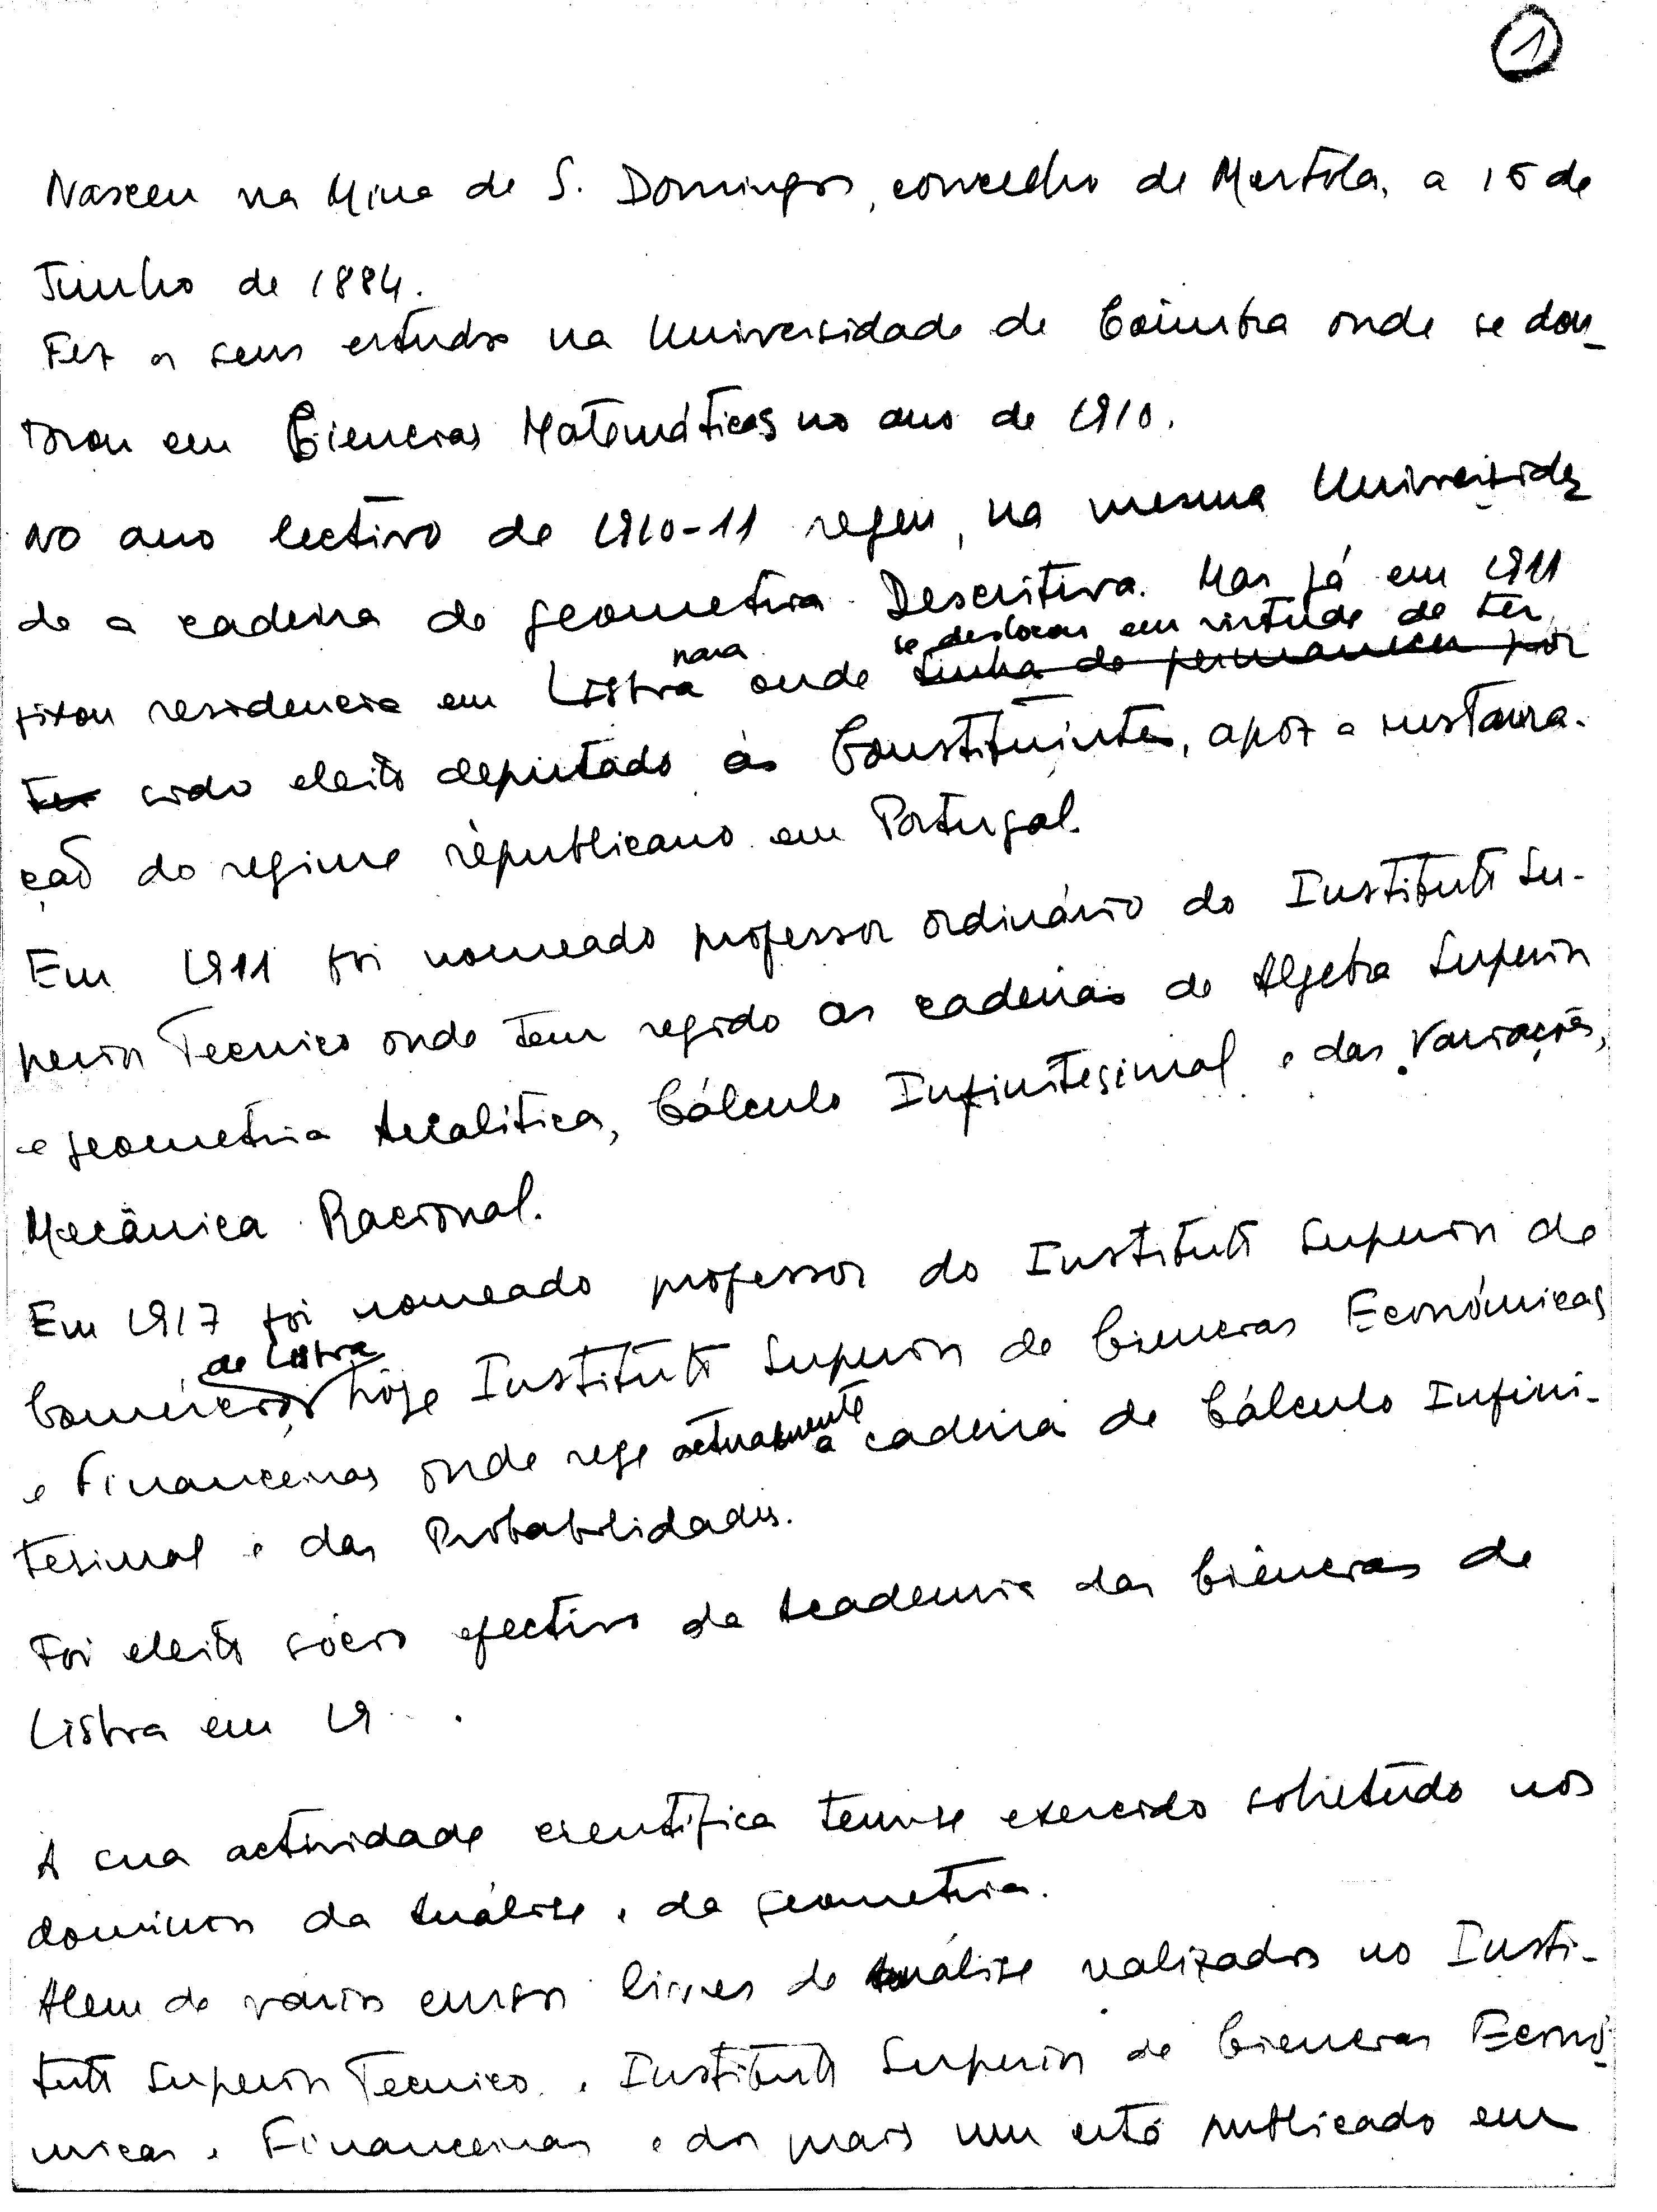 1
Nasceu na Mina de S. Domingos, concelho de Mertola, a 15 de
Junho de 1884.
Fez os seus estudos na Universidade de Coimbra onde se dou-
torou em Ciencias Matemáticas no ano de 1910.
No ano lectivo de 1910-11 regeu, na mesma Universida
de a cadeira de geometria Descritiva. Mas já em 1911
se deslocou em virtude de ter
fixou residencia em Lisboa para onde tinha de permanecer por
ter sido eleito deputado ás Constituintes, apoz a restaura-
ção do regime republicano em Portugal.
Em 1911 foi nomeado professor ordinário do Instituto Su-
perior Tecnico onde tem regido as cadeiras de Algebra Superior
e geometria Analitica, Cálculo Infinitesimal e das Variações,
Mecânica Racional.
Em 1917 foi nomeado professor do Instituto Superior de
de Lisboa
Comércio, hoje Instituto Superior de Ciencias Económicas
e Financeiras onde rege actualmente a cadeira de Cálculo Infini-
tesimal e das Probabilidades.
Foi eleito sócio efectivo da Academia das Ciências de
Lisboa em 19 .
A sua actividade cientifica tem-se exercido sobretudo nos
dominios da Análise e da geometria.
Alem de varios cursos livres de Análise realizados no Insti-
tuto Superior Tecnico e Instituto Superior de Ciencias Econó-
micas e Financeiras e dos mais um está publicado em